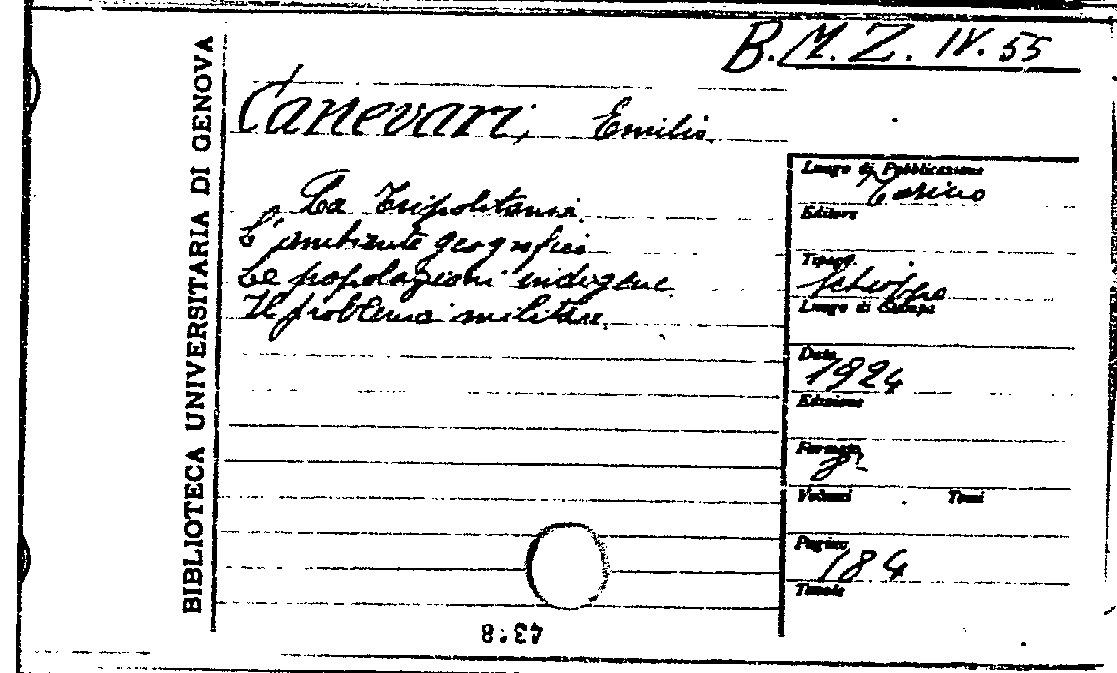 B.M.Z. IV. 55
BIBLIOTECA UNIVERSITARIA DI GENOVA
Canevari, Emilio.
La Tripolitania.
L'ambiente geografico
Le popolazioni indigene
Il problema militare.
Luogo di Pubblicazione
Torino
Editore
Tipogr.
Schioppo
Luogo di Stampa
Data
1924
Edizione
Formato
8º
Volumi Tomi
Pagine
184
Tavole